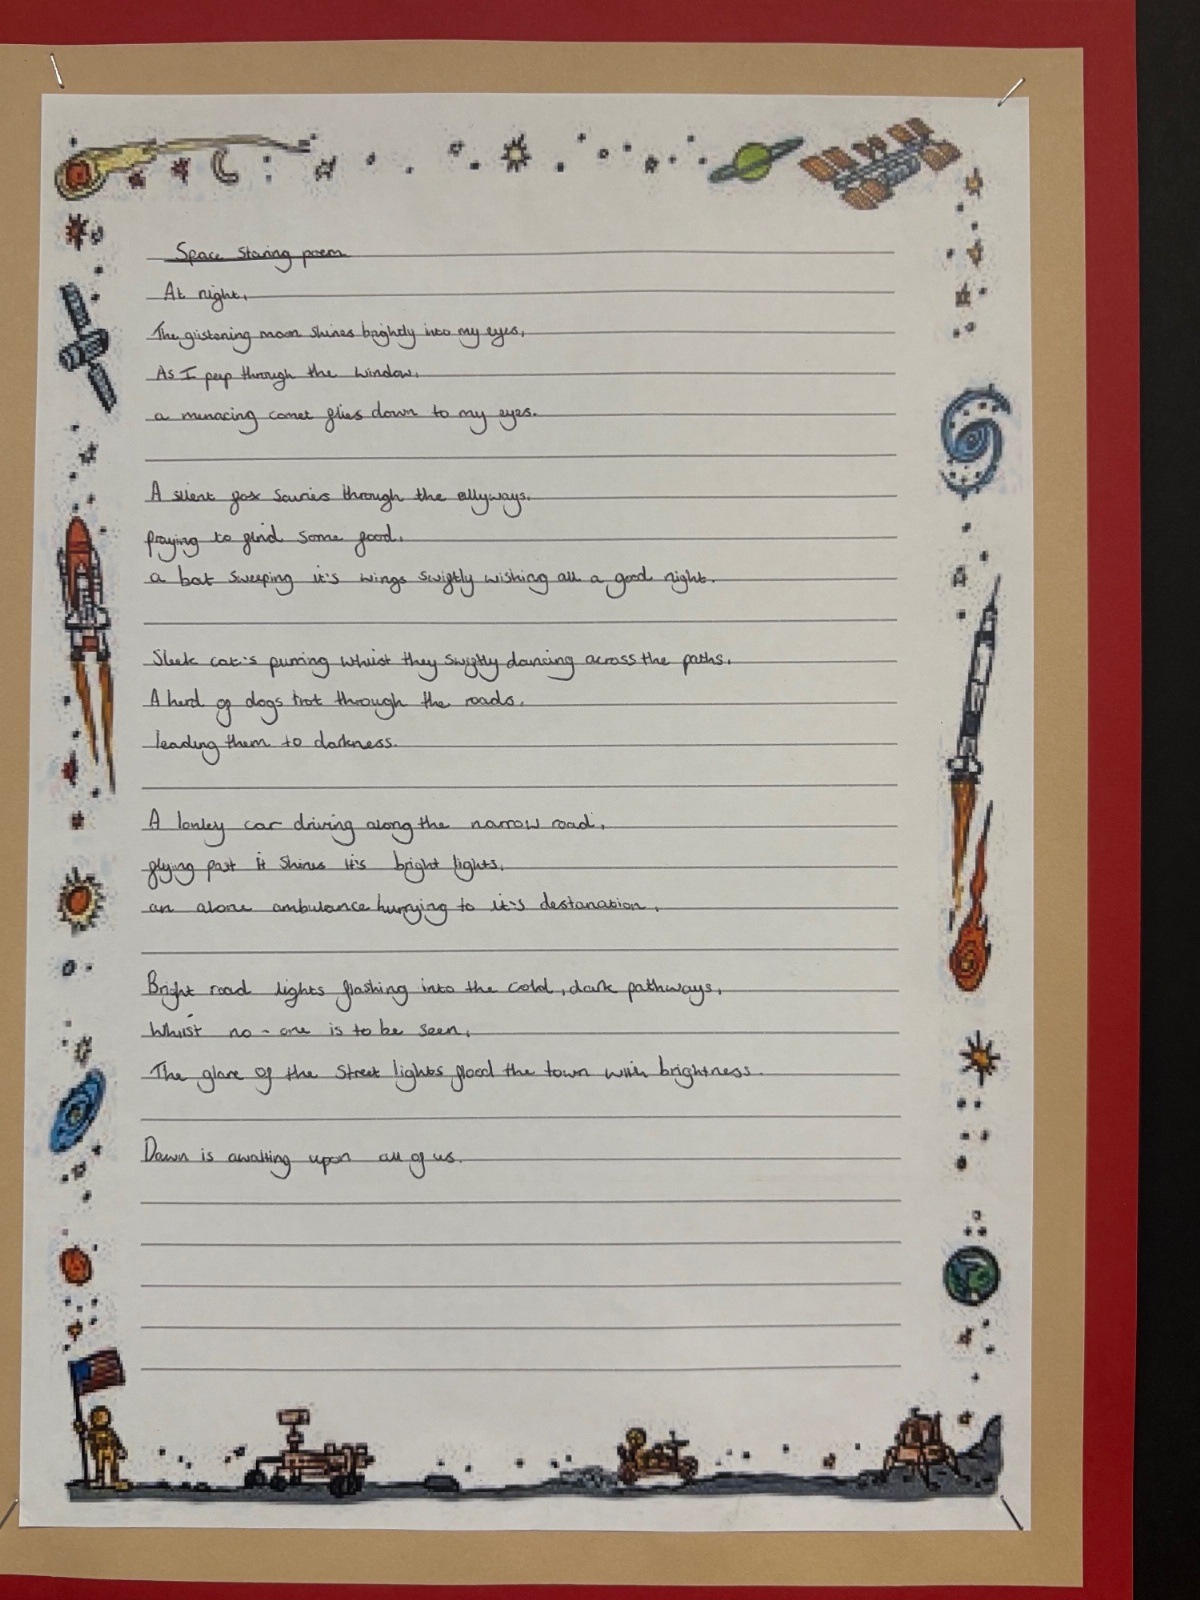 Space Staring poem
At night,
The glistening moon shines brightly into my eyes,
As I peep through the window,
a menacing comet flies down to my eyes.
A silent fox scurries through the allyways,
praying to find some food,
a bat sweeping it's wings swiftly wishing all a good night.
Sleek cat's purring whilst they swiftly dancing across the paths,
A herd of dogs trot through the roads,
leading them to darkness.
A lonley car driving along the narrow road,
flying past it shines it's bright lights,
an alone ambulance hurrying to it's destanation,
Bright road lights flashing into the cold, dark pathways,
Whilst no-one is to be seen,
The glare of the Street lights flood the town with brightness.
Dawn is awaiting upon all of us.